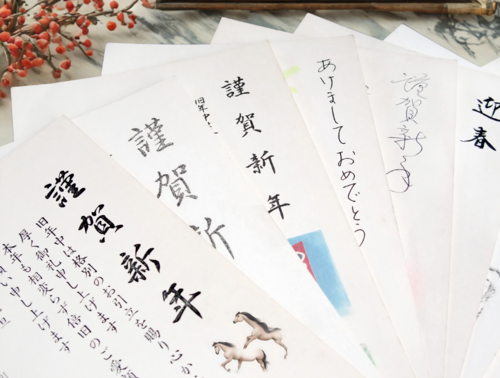 謹賀新年
旧年中は格別のお引立を賜り心か
厚く御礼申し上げます
本年も相変らず倍旧のご愛顧
謹賀新
謹賀新年
旧年中は
あけまして
おめでとう
謹賀新年
迎春